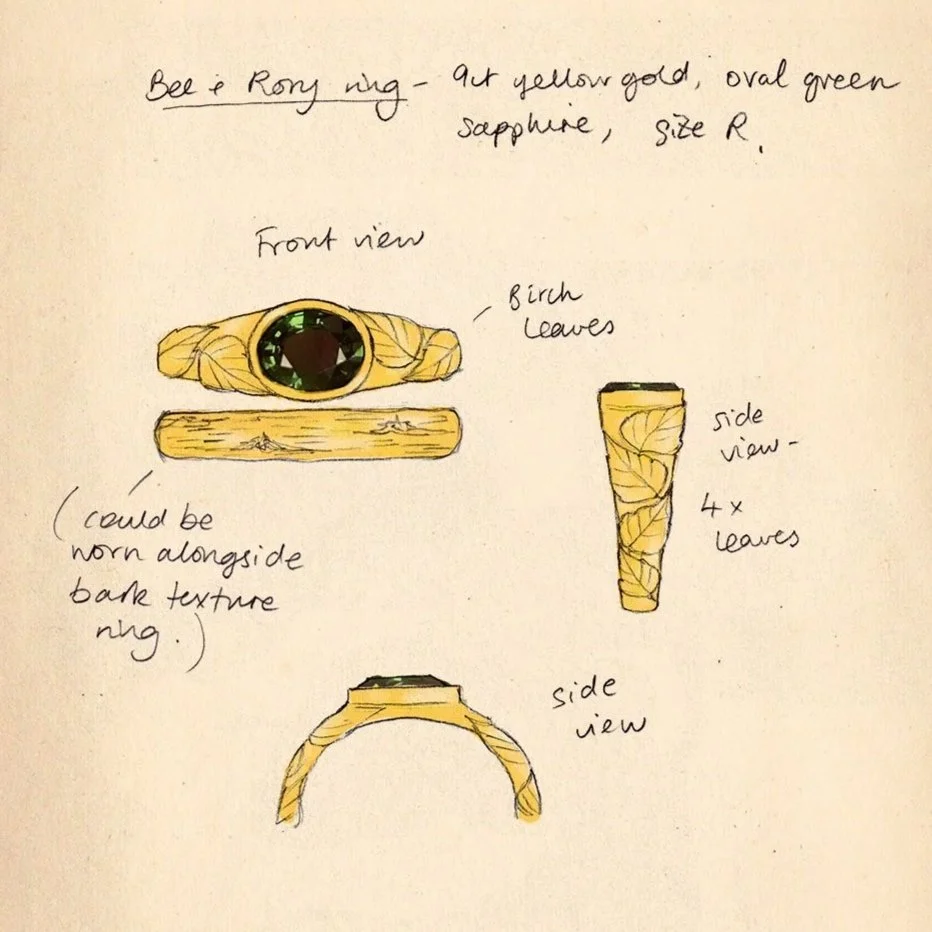 Bee + Rory ring - 9ct yellow gold, oval green
sapphire, size R.
Front view
Birch
leaves
side
view -
4x
leaves
(could be
worn alongside
bark texture
ring.)
side
view